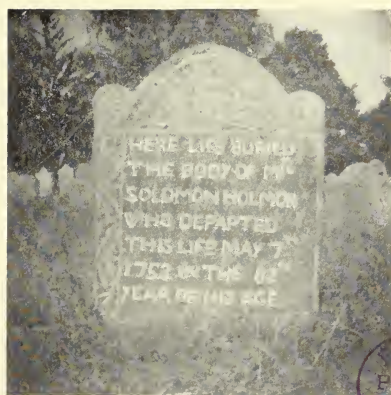 HERE LIES BURIED
THE BODY OF Mr
SOLOMON HOLMON
WHO DEPARTED
THIS LIFE MAY 7th
1753 IN THE 82nd
YEAR OF HIS AGE